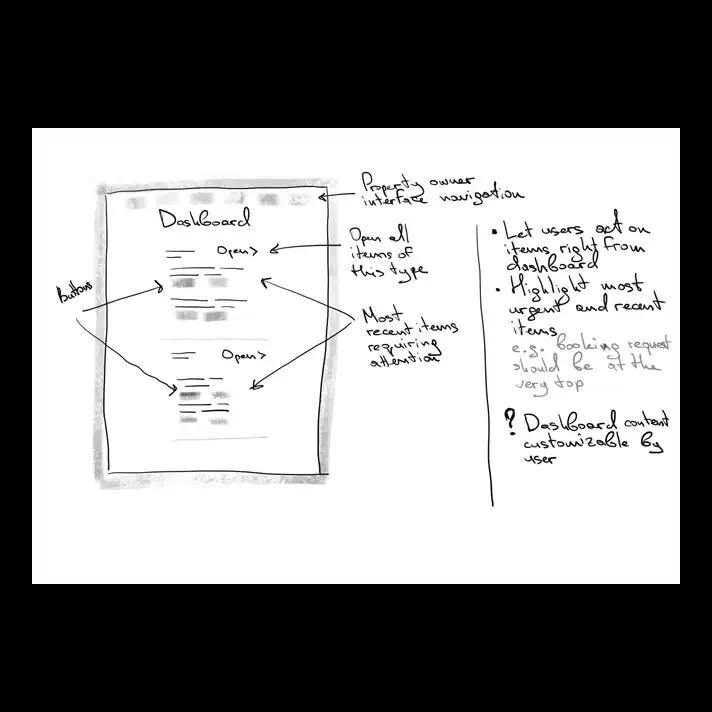 Property owner
interface navigation
Dashboard
Open all
items of
this type
Open >
Buttons
Most
recent items
requiring
attention
Open >
• Let users act on
items right from
dashboard
• Highlight most
urgent and recent
items
e.g. booking request
should be at the
very top
? Dashboard content
customizable by
user